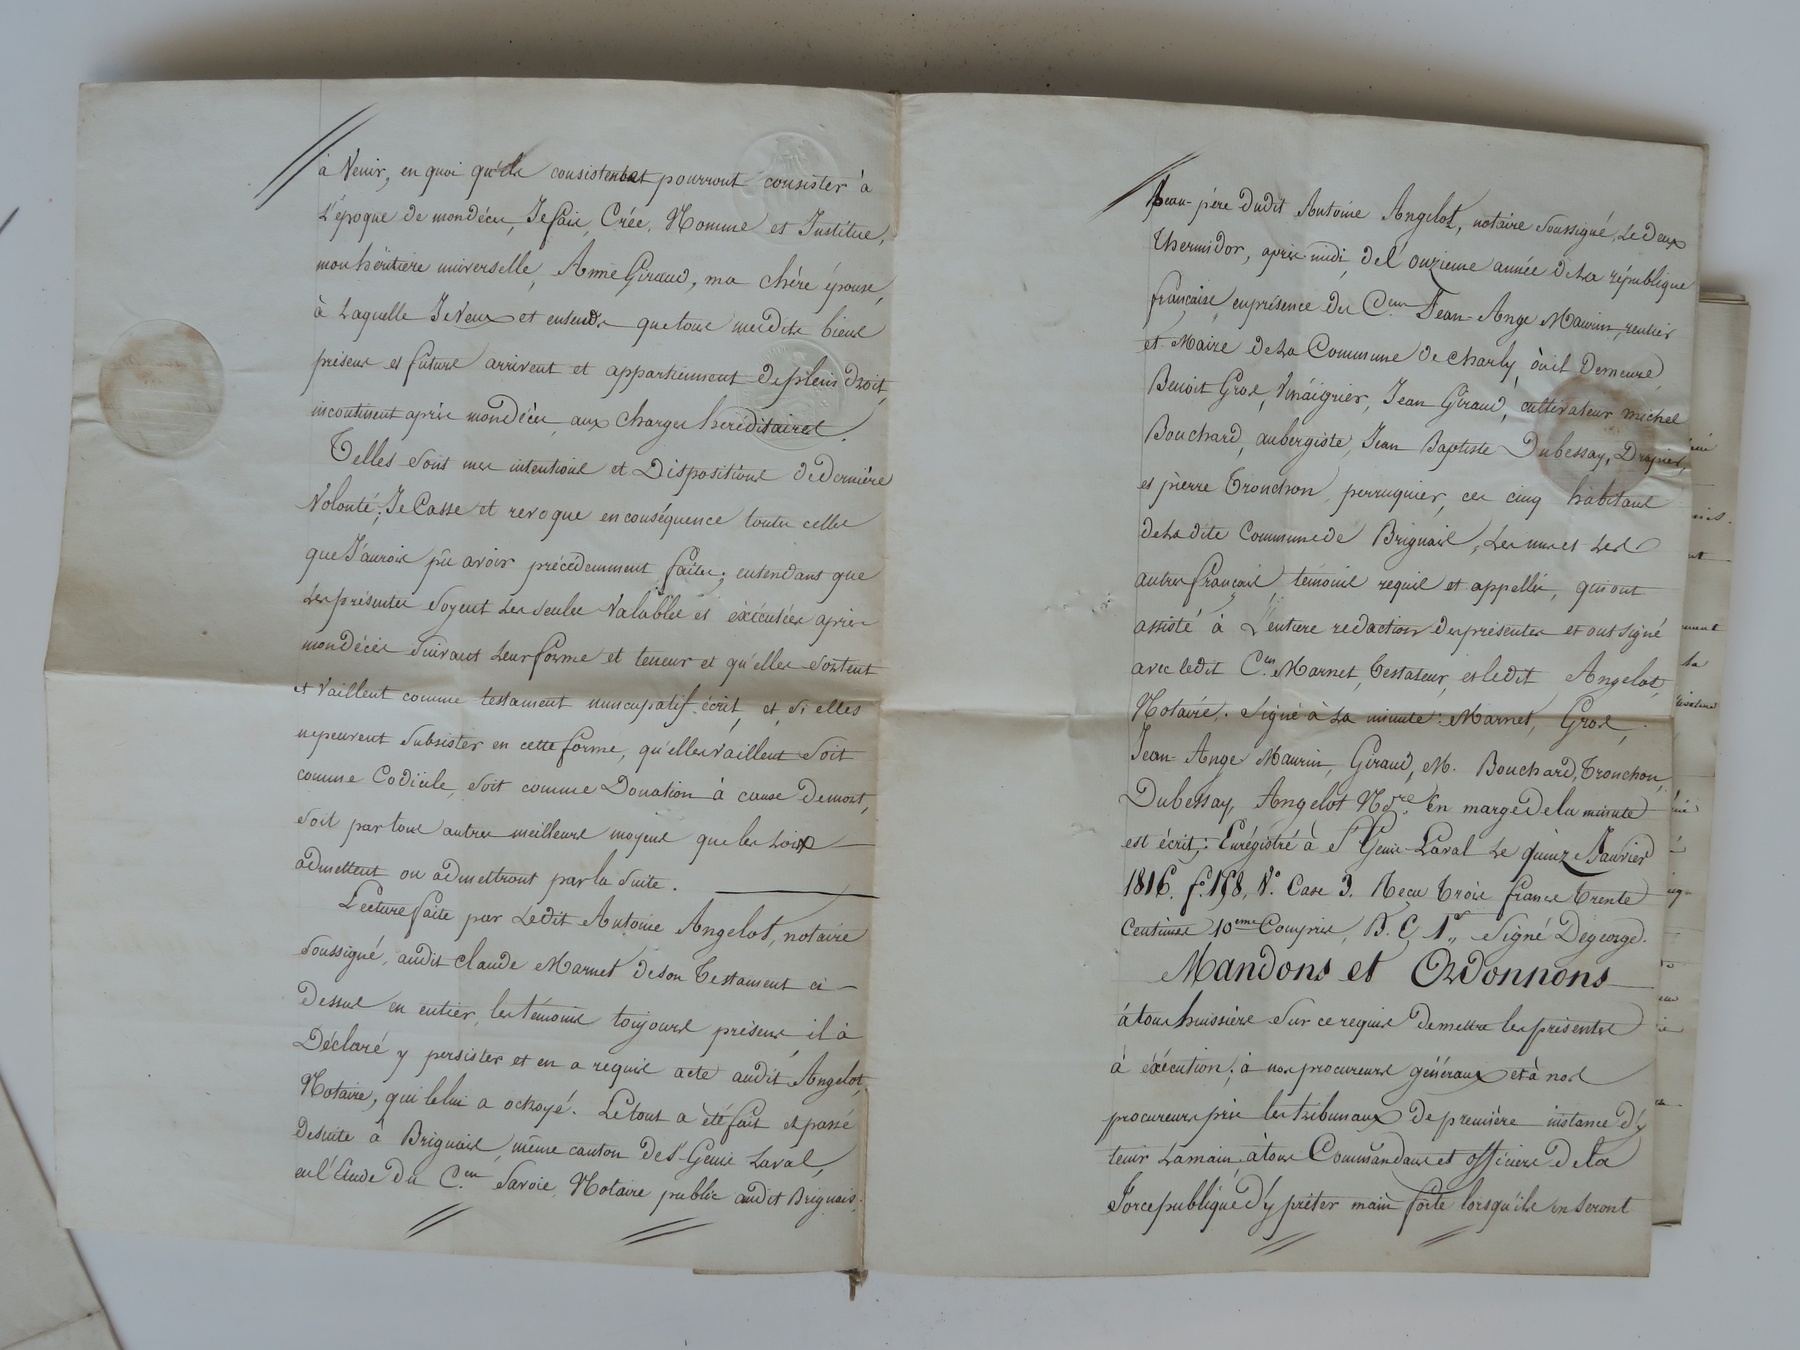 à Venir, en quoi qu'ils consistent et pourront consister à
L'époque de mon décès, Je fais, Crée, Nomme et Institue,
mon héritière universelle, Anne Giraud, ma chère épouse,
à Laquelle Je Veux et entends que tous mesdits biens
présens et futurs arrivent et appartiennent de plein droit,
incontinent après mon décès, aux charges héréditaires.
Telles sont mes intentions et Dispositions de dernière
Volonté; Je Casse et revoque en conséquence toutes celles
que J'aurois pû avoir précédemment faites; entendans que
Les présentes soyent Les seules valables et éxécutées après
mon décès suivant Leur forme et teneur et qu'elles sortent
et vaillent comme testament nuncupatif écrit, et, si elles
ne peuvent subsister en cette forme, qu'elles vaillent soit
comme Codicile, soit comme Donation à cause de mort,
soit par tous autres meilleurs moyens que les Loix
admettent ou admettront par la suite.
Lecture faite par Ledit Antoine Angelot, notaire
soussigné, audit claude Marnet de son Testament ci
dessus en entier, les témoins toujours présens, il à
Déclaré y persister et en a requis acte audit Angelot,
Notaire, qui le lui a octroyé. Le tout a été fait et passé
de suite à Brignais, même canton de St Genis Laval,
en l'Etude du C.en Savoie, Notaire public audit Brignais,
Beau-père dudit Antoine Angelot, notaire soussigné, Le deux
thermidor, après midi, de L'onzieme année de La république
française, en présence des C.ens Jean-Ange Maurin, rentier
et Maire de La Commune de Charly, où il Demeure,
Benoit Gros, Vinaigrier, Jean Giraud, cultivateur michel
Bouchard, aubergiste, Jean Baptiste Dubessay, Drapier,
et pierre Tronchon, perruquier, ces cinq habitans
de La dite Commune de Brignais, Les uns et Les
autres français, témoins requis et appellés, qui ont
assisté à L'entiere redaction des présentes et ont signé
avec ledit C.en Marnet, testateur, et ledit Angelot,
Notaire. Signé à La minute: Marnet, Gros,
Jean-Ange Maurin, Giraud, M. Bouchard, Tronchon,
Dubessay, Angelot N.re En marge de la minute
est écrit: Enrégistré à St Genis-Laval Le quinze Janvier
1816. f.o 158, V.o Case 3. Recu trois francs trente
Centimes 10eme Compris, Signé Degeorge.
Mandons et Ordonnons
à tous huissiers sur ce requis de mettre les présentes
à éxécution; à nos procureurs généraux et à nos
procureurs près les tribunaux de première instance d'y
tenir La main, à tous Commandans et officiers de la
force publique d'y prêter main forte lorsqu'ils en seront